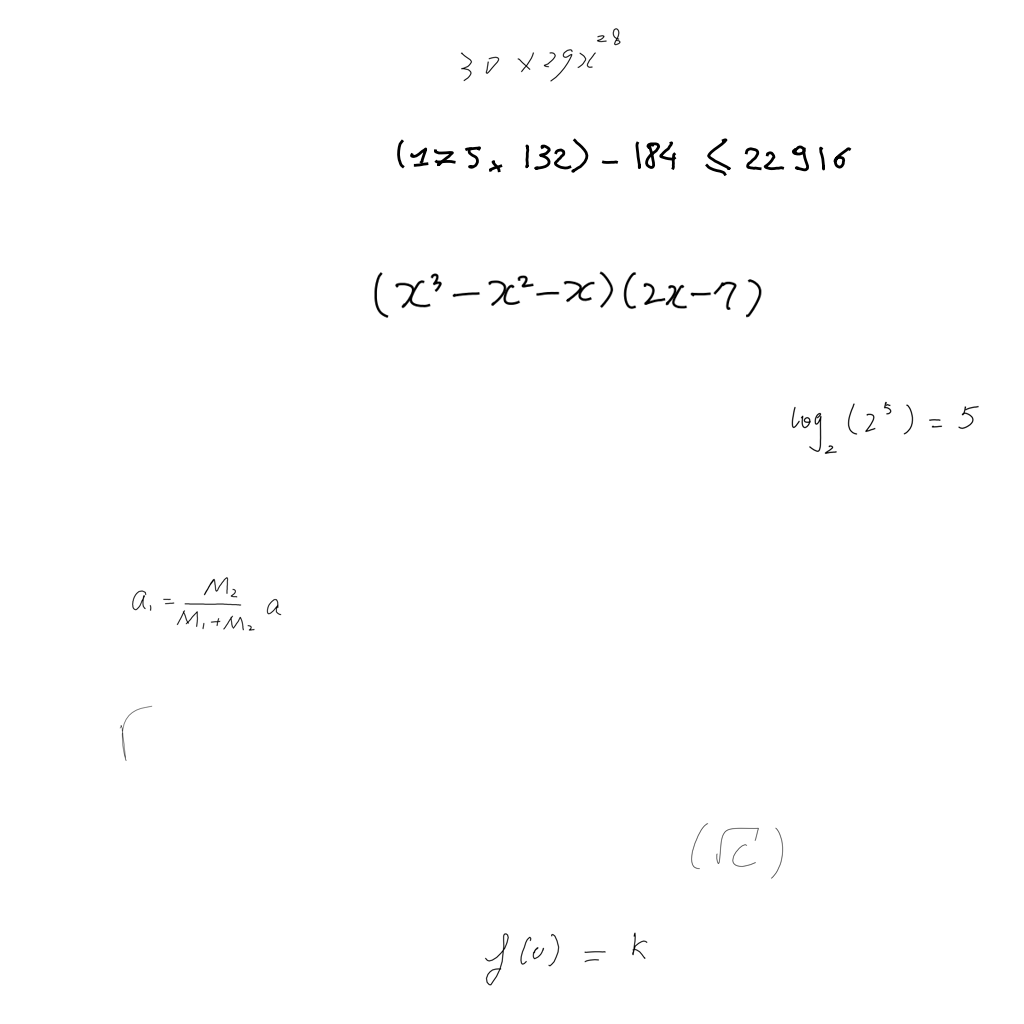 30 × 29x^{28}
(175 × 132) - 184 ≤ 22916
(x³ - x² - x)(2x - 7)
log₂(2⁵) = 5
a₁ = \frac{M₂}{M₁ + M₂} a
(√c)
f(0) = k